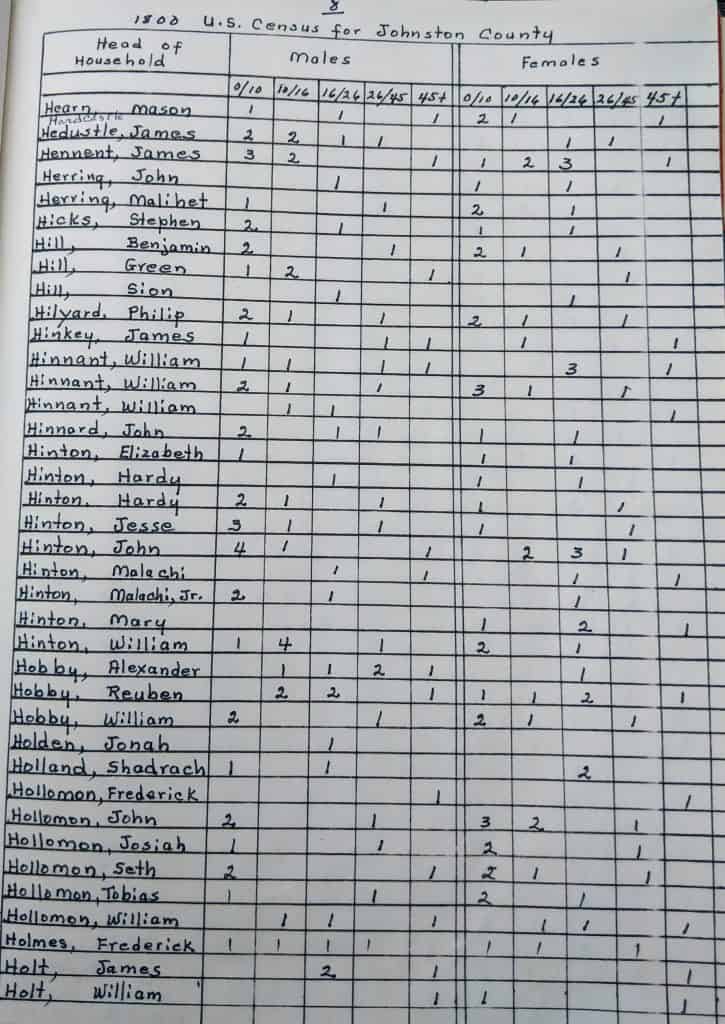 8
1800 U.S. Census for Johnston County
Head of Household Males Females
0/10 10/16 16/26 26/45 45+ 0/10 10/16 16/26 26/45 45+
Hearn, Mason 1 1 1 2 1 1
Hardcastle
Hedustle, James 2 2 1 1 1 1
Hennent, James 3 2 1 1 2 3 1
Herring, John 1 1 1
Herring, Malihet 1 1 2 1
Hicks, Stephen 2 1 1 1
Hill, Benjamin 2 1 2 1 1
Hill, Green 1 2 1 1
Hill, Sion 1 1
Hilyard, Philip 2 1 1 2 1 1
Hinkey, James 1 1 1 1 1
Hinnant, William 1 1 1 1 3 1
Hinnant, William 2 1 1 3 1 1
Hinnant, William 1 1 1
Hinnard, John 2 1 1 1 1
Hinton, Elizabeth 1 1 1
Hinton, Hardy 1 1 1
Hinton, Hardy 2 1 1 1 1
Hinton, Jesse 3 1 1 1 1
Hinton, John 4 1 1 2 3 1
Hinton, Malachi 1 1 1 1
Hinton, Malachi, Jr. 2 1 1
Hinton, Mary 1 2 1
Hinton, William 1 4 1 2 1
Hobby, Alexander 1 1 2 1 1
Hobby, Reuben 2 2 1 1 1 2 1
Hobby, William 2 1 2 1 1
Holden, Jonah 1
Holland, Shadrach 1 1 2
Hollomon, Frederick 1 1
Hollomon, John 2 1 3 2 1
Hollomon, Josiah 1 1 2 1
Hollomon, Seth 2 1 2 1 1
Hollomon, Tobias 1 1 2 1
Hollomon, William 1 1 1 1 1 1
Holmes, Frederick 1 1 1 1 1 1 1
Holt, James 2 1 1
Holt, William 1 1 1